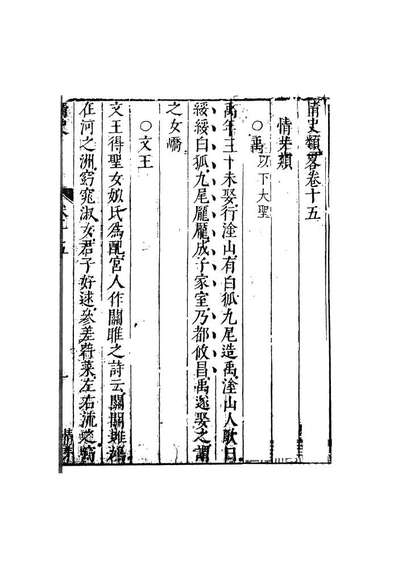 情史類畧卷十五
情芽類
○禹 以下大聖
禹年三十未娶行塗山有白狐九尾造禹塗山人歌曰
綏綏白狐九尾龐龐成子家室乃都攸昌禹遂娶之謂
之女嬌
○文王
文王得聖女姒氏為配宮人作關雎之詩云關關雎鳩
在河之洲窈窕淑女君子好逑參差荇菜左右流之窈
情史
卷十五
一
情芽